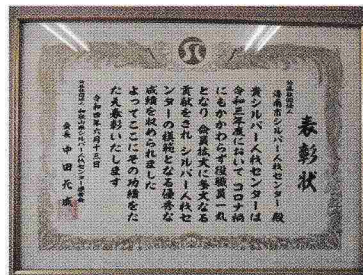 表彰状
公益社団法人
海南市シルバー人材センター 殿
貴シルバー人材センターは
令和三年度において コロナ禍
にもかかわらず役職員一丸
となり 会員拡大に多大なる
貢献をされ シルバー人材セ
ンターの模範となる優秀な
成績を収められました
よってここにその功績をた
たえ表彰いたします
令和四年六月十三日
会長 中田